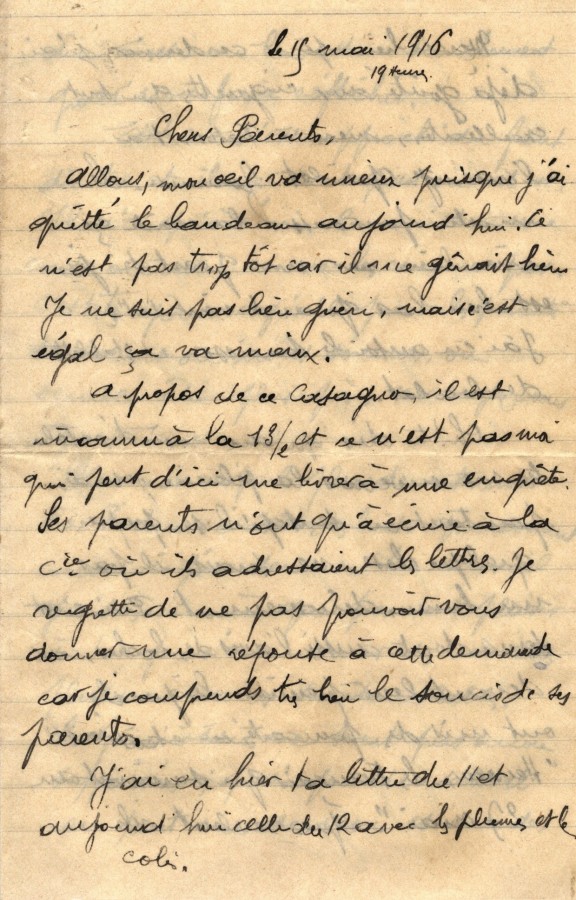 le 15 mai 1916
19 heures.
Chers Parents,
Allons, mon oeil va mieux puisque j'ai
quitté le bandeau aujourd'hui. Ce
n'est pas trop tôt car il me gênait bien
Je ne suis pas bien guéri, mais c'est
égal ça va mieux.
A propos de ce Casagno, il est
inconnu à la 13/2 et ce n'est pas moi
qui peut d'ici me livrer à une enquête.
Ses parents n'ont qu'à écrire à la
Cie où ils adressaient les lettres. Je
regrette de ne pas pouvoir vous
donner une réponse à cette demande
car je comprends très bien le soucis de ses
parents.
J'ai eu hier ta lettre du 11 et
aujourd'hui celle du 12 avec les plumes et le
colis.